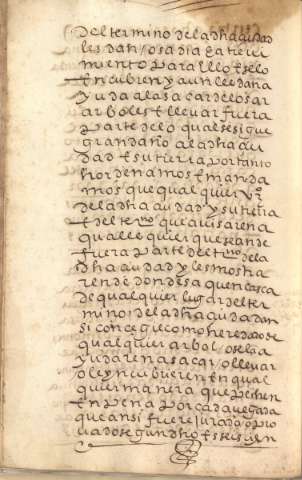 del termino de la dha çiudad
les dan / osadia e atrevi
miento para ello e se lo
encubren y aun le dan a
yuda a las acar de los ar
arboles e llevar fuera
parte de lo qual se sigue
gran daño a la dha çiu
dad e su tierra por tanto
hordenamos e manda
mos que qual quier vzº
de la dha çiudad y su tierra
e del termº que avisare na
qual le quier que sean de
fuera parte del termº de la
dha çiudad y les mostra
ren de donde saquen casca
de qual quier lugar del ter
mino de la dha çiudad an
si conçegil como heredado de
qual quier arbol o se la a
yudaren a sacar o llevar
o le encubrieren en qual
quier manera que pechen
en pena por cada vegada
que ansi fuere jurado o pro
vado segun dho es seis çien